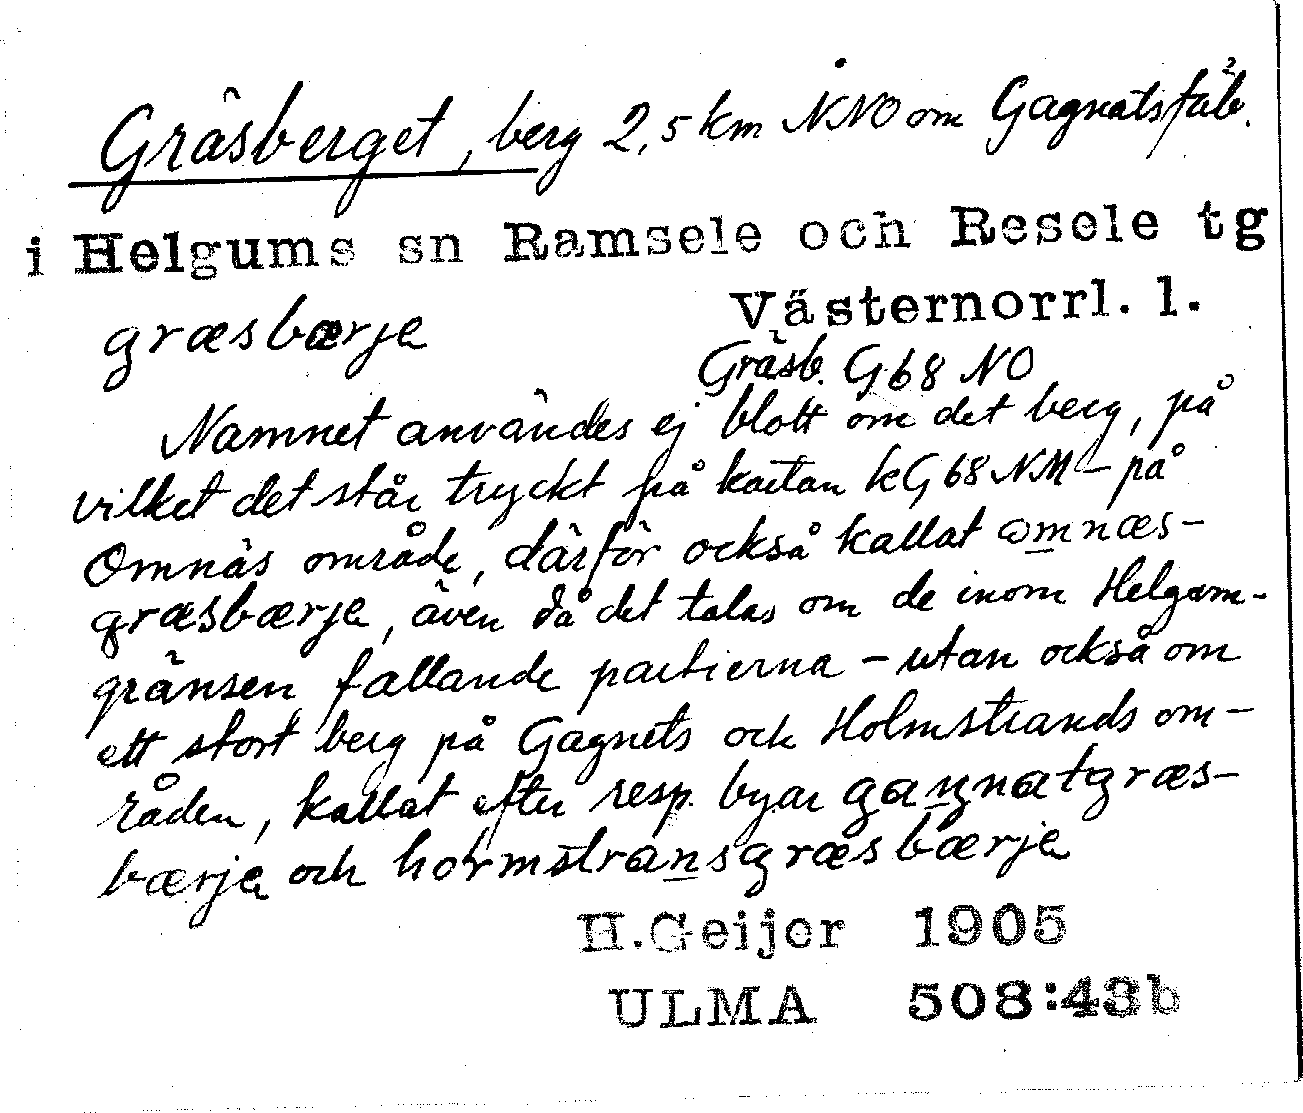 Gräsberget, berg 2,5 km NNO om Gagnatsfäb.
i Helgums sn Ramsele och Resele tg
Västernorrl. l.
græsbærje
Gräsb. G68 NO
Namnet användes ej blott om det berg, på
vilket det står tryckt på kartan kG68NM – på
Omnäs område, därför också kallat omnæs-
græsbærje, även då det talas om de inom Helgum-
gränsen fallande partierna – utan också om
ett stort berg på Gagnets och Holmstrands om-
råden, kallat efter resp. byar gaŋnatgræs-
bærje och hormstransgræsbærje
H.Geijer 1905
ULMA 508:43b